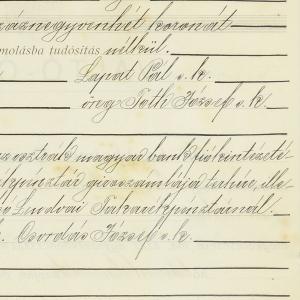 száznegyvenhét koronát
molásba tudósitás nélkül.
Lapat Pál s. k.
özv Tóth József s. k.
az osztrák magyar bank fiókintézeté-
kpénztár girószámlája terhére, ille-
Lendvai Takarékpénztárnál.
Csordás József s. k.